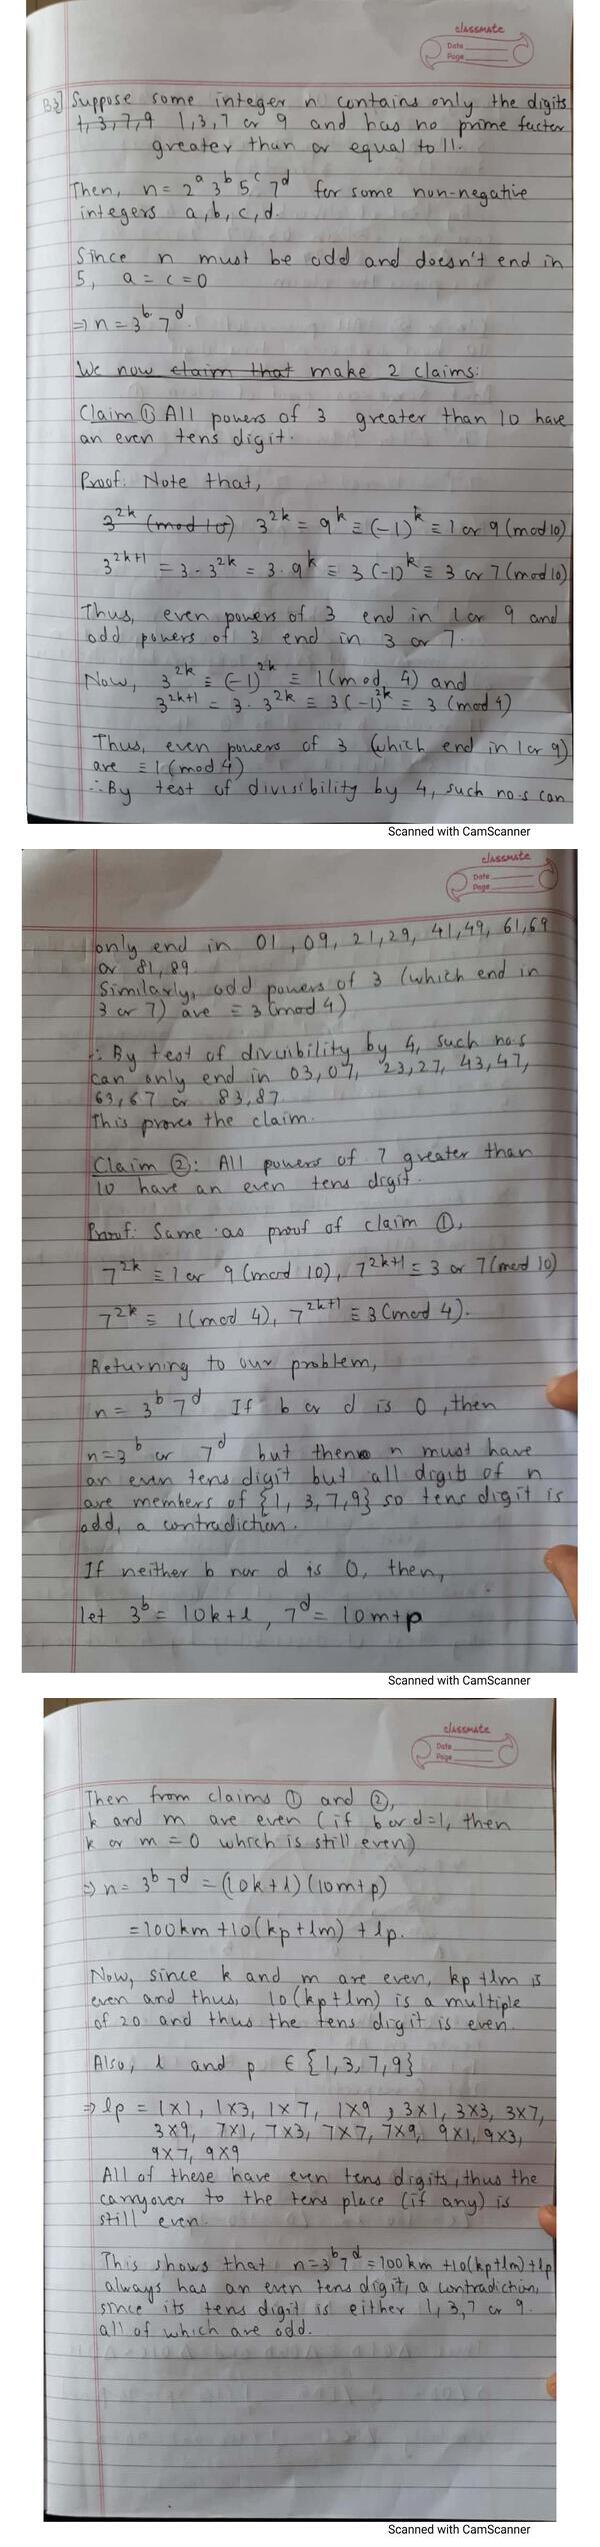 classmate
Date
Page
B3] Suppose some integer n contains only the digits
1, 3, 7, 9 1, 3, 7 or 9 and has no prime factor
greater than or equal to 11.
Then, n = 2^a 3^b 5^c 7^d for some non-negative
integers a, b, c, d.
Since n must be odd and doesn't end in
5, a = c = 0
⇒ n = 3^b 7^d.
We now claim that make 2 claims:
Claim ① All powers of 3 greater than 10 have
an even tens digit.
Proof: Note that,
3^2k (mod 10) 3^2k = 9^k ≡ (-1)^k ≡ 1 or 9 (mod 10)
3^2k+1 = 3 · 3^2k = 3 · 9^k ≡ 3 (-1)^k ≡ 3 or 7 (mod 10)
Thus, even powers of 3 end in 1 or 9 and
odd powers of 3 end in 3 or 7.
Now, 3^2k ≡ (-1)^2k ≡ 1 (mod 4) and
3^2k+1 = 3 · 3^2k ≡ 3 (-1)^2k ≡ 3 (mod 4)
Thus, even powers of 3 (which end in 1 or 9)
are ≡ 1 (mod 4)
∴ By test of divisibility by 4, such no.s can
Scanned with CamScanner
classmate
Date
Page
only end in 01, 09, 21, 29, 41, 49, 61, 69
or 81, 89.
Similarly, odd powers of 3 (which end in
3 or 7) are ≡ 3 (mod 4)
∴ By test of divisibility by 4, such no.s
can only end in 03, 07, 23, 27, 43, 47,
63, 67 or 83, 87.
This proves the claim.
Claim ②: All powers of 7 greater than
10 have an even tens digit.
Proof: Same as proof of claim ①,
7^2k ≡ 1 or 9 (mod 10), 7^2k+1 ≡ 3 or 7 (mod 10)
7^2k ≡ 1 (mod 4), 7^2k+1 ≡ 3 (mod 4).
Returning to our problem,
n = 3^b 7^d If b or d is 0, then
n = 3^b or 7^d but then n must have
an even tens digit but all digits of n
are members of {1, 3, 7, 9} so tens digit is
odd, a contradiction.
If neither b nor d is 0, then,
let 3^b = 10k + l, 7^d = 10m + p
Scanned with CamScanner
classmate
Date
Page
Then from claims ① and ②,
k and m are even (if b or d = 1, then
k or m = 0 which is still even)
⇒ n = 3^b 7^d = (10k + l) (10m + p)
= 100km + 10(kp + lm) + lp.
Now, since k and m are even, kp + lm is
even and thus, 10(kp + lm) is a multiple
of 20 and thus the tens digit is even.
Also, l and p ∈ {1, 3, 7, 9}
⇒ lp = 1×1, 1×3, 1×7, 1×9, 3×1, 3×3, 3×7,
3×9, 7×1, 7×3, 7×7, 7×9, 9×1, 9×3,
9×7, 9×9
All of these have even tens digits, thus the
carryover to the tens place (if any) is
still even.
This shows that n = 3^b 7^d = 100km + 10(kp + lm) + lp
always has an even tens digit, a contradiction,
since its tens digit is either 1, 3, 7 or 9
all of which are odd.
Scanned with CamScanner